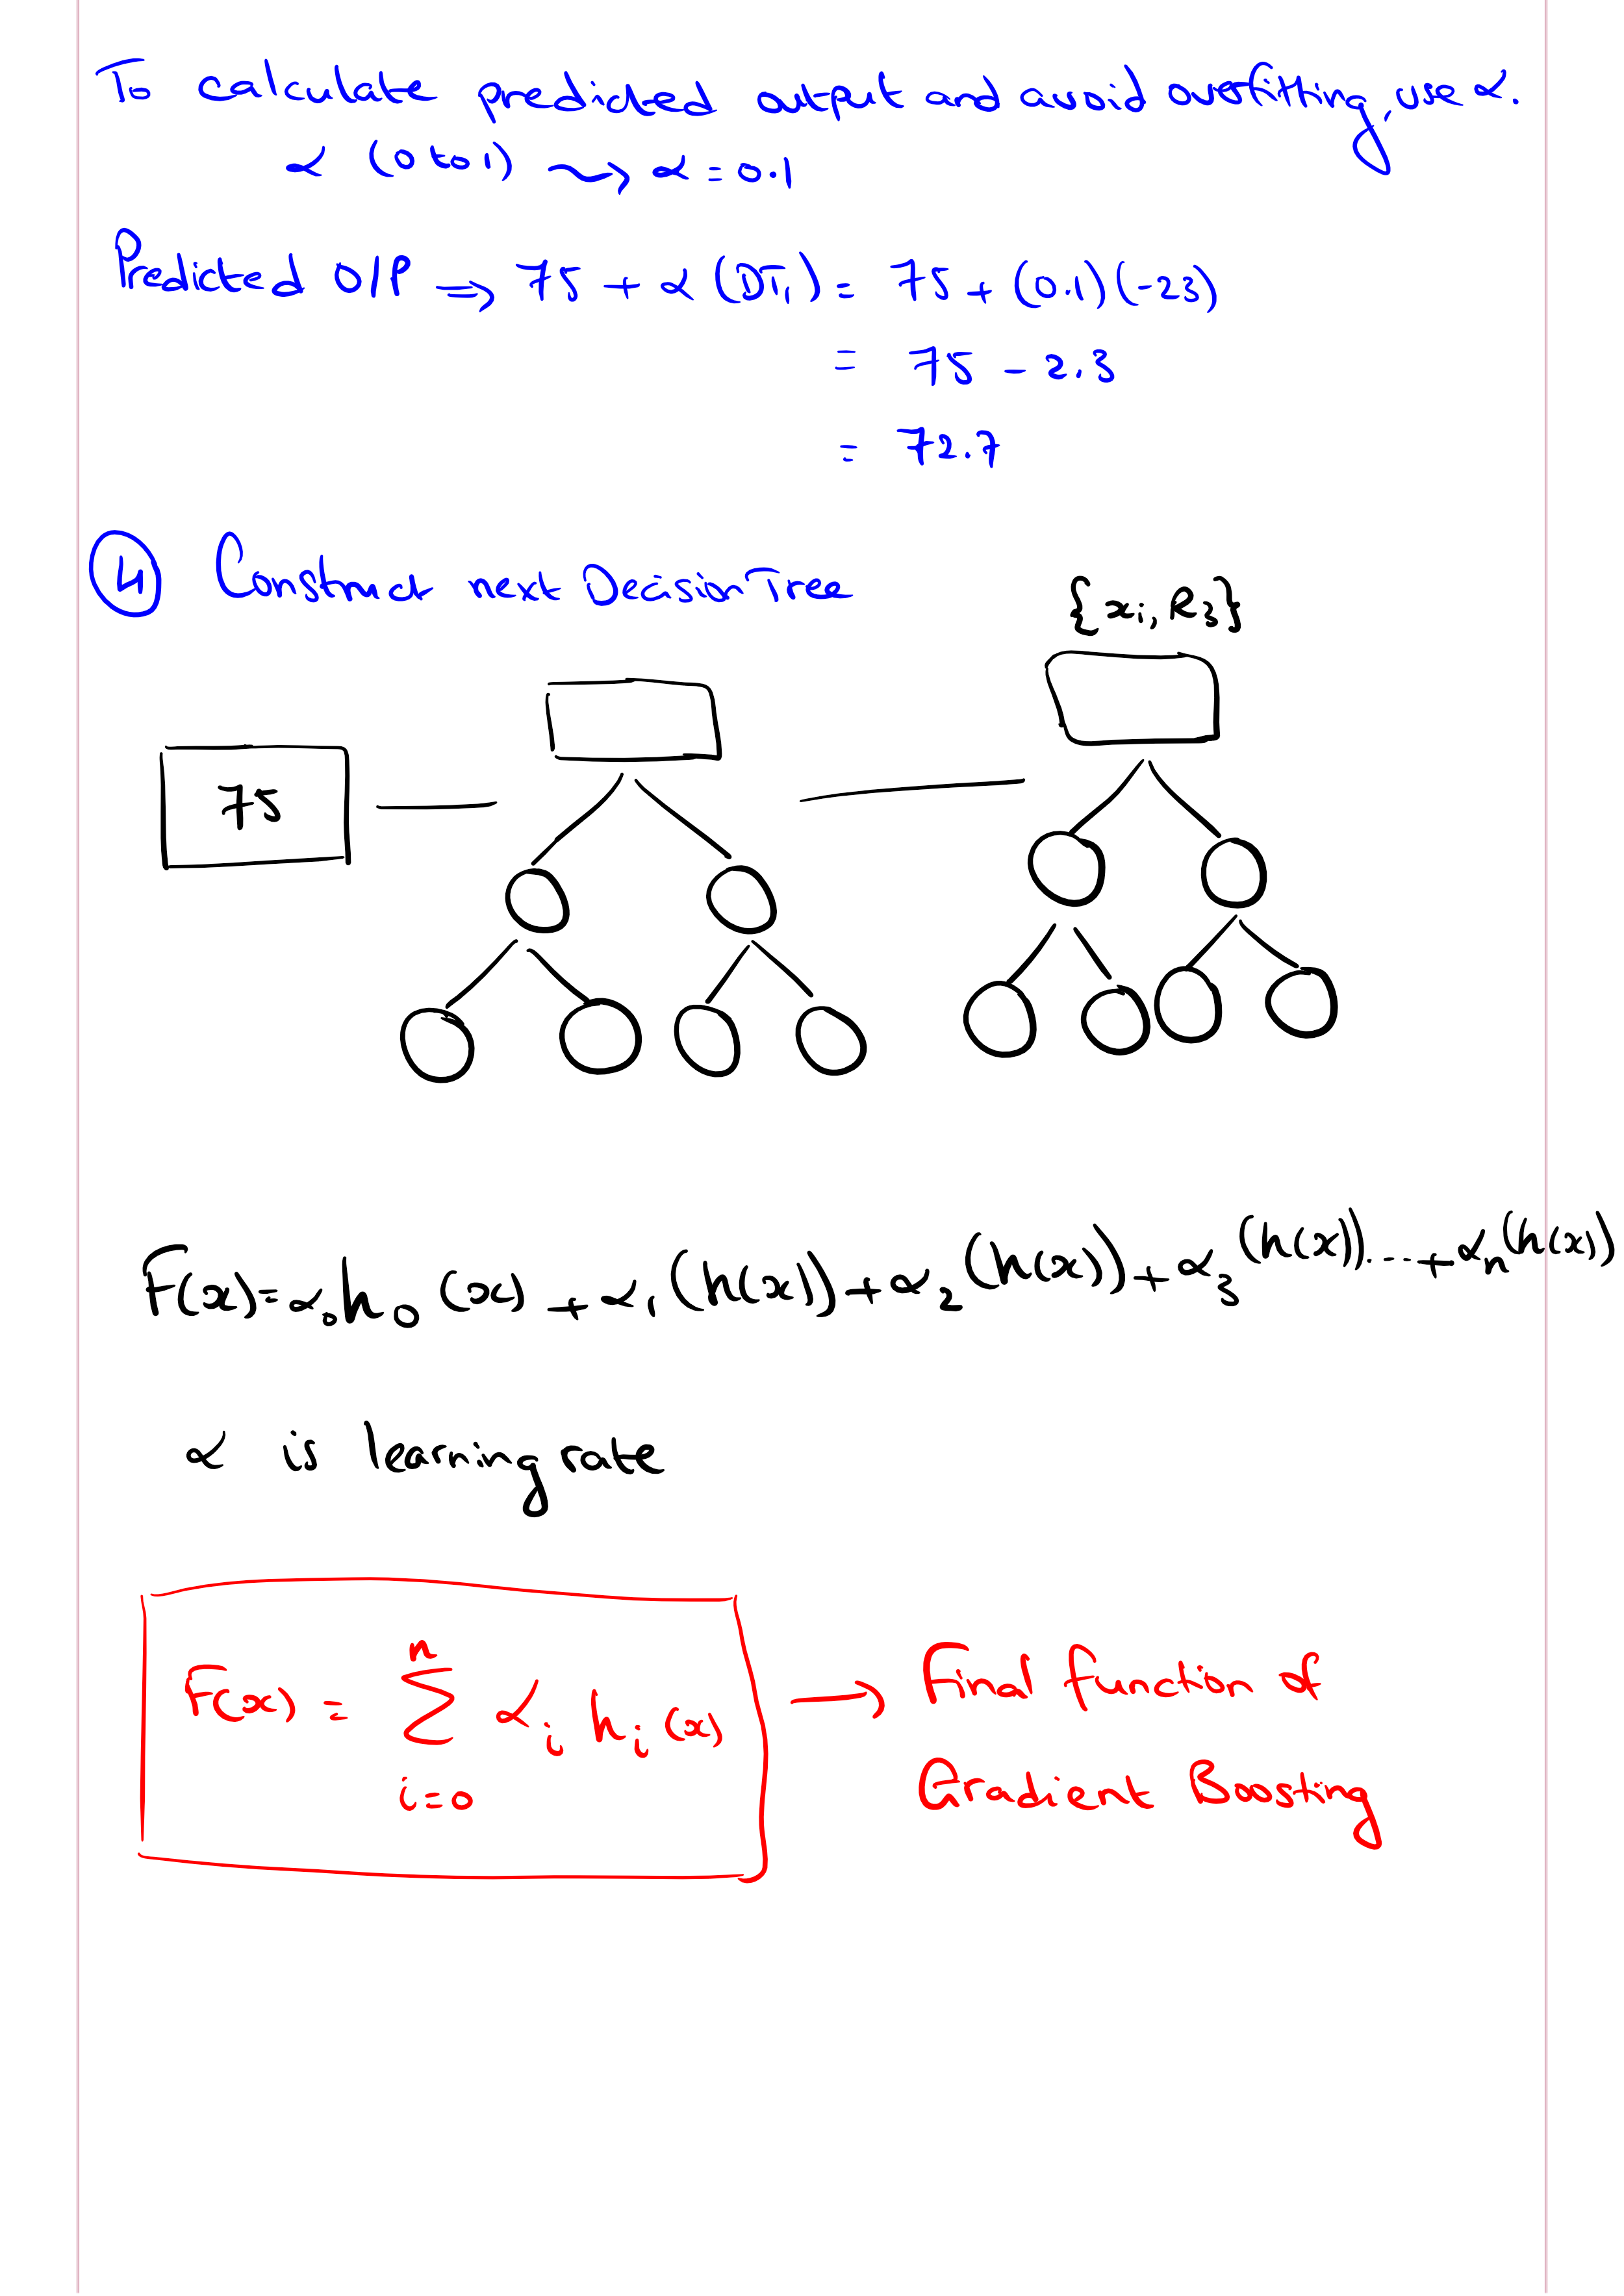 To calculate predicted output and avoid overfitting, use α.
α (0 to 1) ⟿ α = 0.1
Predicted O/P ⇒ 75 + α (DT₁) = 75 + (0.1)(-23)
= 75 - 2.3
= 72.7
④ Construct next Decision Tree
{xᵢ, R₃}
75
F(x) = α₀h₀(x) + α₁(h(x)) + α₂(h(x)) + α₃(h(x)) .... + αₙ(h(x))
α is learning rate
F(x) = ∑ⁿᵢ₌₀ αᵢ hᵢ(x) → Final function of
Gradient Boosting